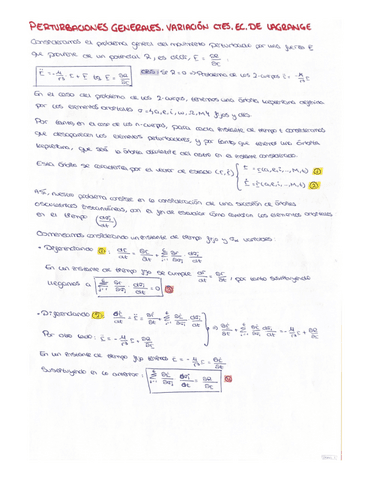 PERTURBACIONES GENERALES. VARIACIÓN CTES. EC. DE LAGRANGE
Consideramos el problema general del movimiento perturbado por una fuerza F
que proviene de un potencial R, es decir, F = ∂R/∂r.
r̈ = -μ/r³ r + F = ∂R/∂r Si R=0 → Problema de los 2-cuerpos: -μ/r³ r
En el caso del problema de los 2-cuerpos, tenemos una órbita
por los elementos orbitales σ = {a, e, i, ω, Ω, M} fijos y des.
Por tanto, en el caso de los n-cuerpos, para cada instante de tiempo t consideramos
que desaparecen los elementos perturbadores, y por tanto que tenemos una órbita
kepleriana, que será la órbita osculatriz del astro en el instante considerado.
Esta órbita se caracteriza por el vector de estado (r, ṙ) { r = r(a, e, i, ..., M, t) ①
ṙ = ṙ(a, e, i, ..., M, t) ②
Así, nuestro problema consiste en la consideración de una sucesión de órbitas
osculatrices instantáneas, con el fin de estudiar cómo cambian los elementos orbitales
en el tiempo (dσj/dt)
Comenzamos considerando un instante de tiempo fijo y σj variables:
• Diferenciando ①: dr/dt = ∂r/∂t + Σ ∂r/∂σj dσj/dt
En un instante de tiempo fijo se cumple dr/dt = ∂r/∂t, por tanto sustituyendo
llegamos a Σ ∂r/∂σj · dσj/dt = 0
• Diferenciando ②: dṙ/dt = r̈ = ∂ṙ/∂t + Σ ∂ṙ/∂σj dσj/dt
Por otro lado: r̈ = -μ/r³ r + ∂R/∂r
En un instante de tiempo fijo tenemos r̈ = -μ/r³ r = ∂ṙ/∂t
Sustituyendo en la anterior: Σ ∂ṙ/∂σj dσj/dt = ∂R/∂r